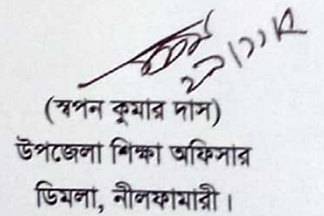 (স্বপন কুমার দাস)
উপজেলা শিক্ষা অফিসার
ডিমলা, নীলফামারী।